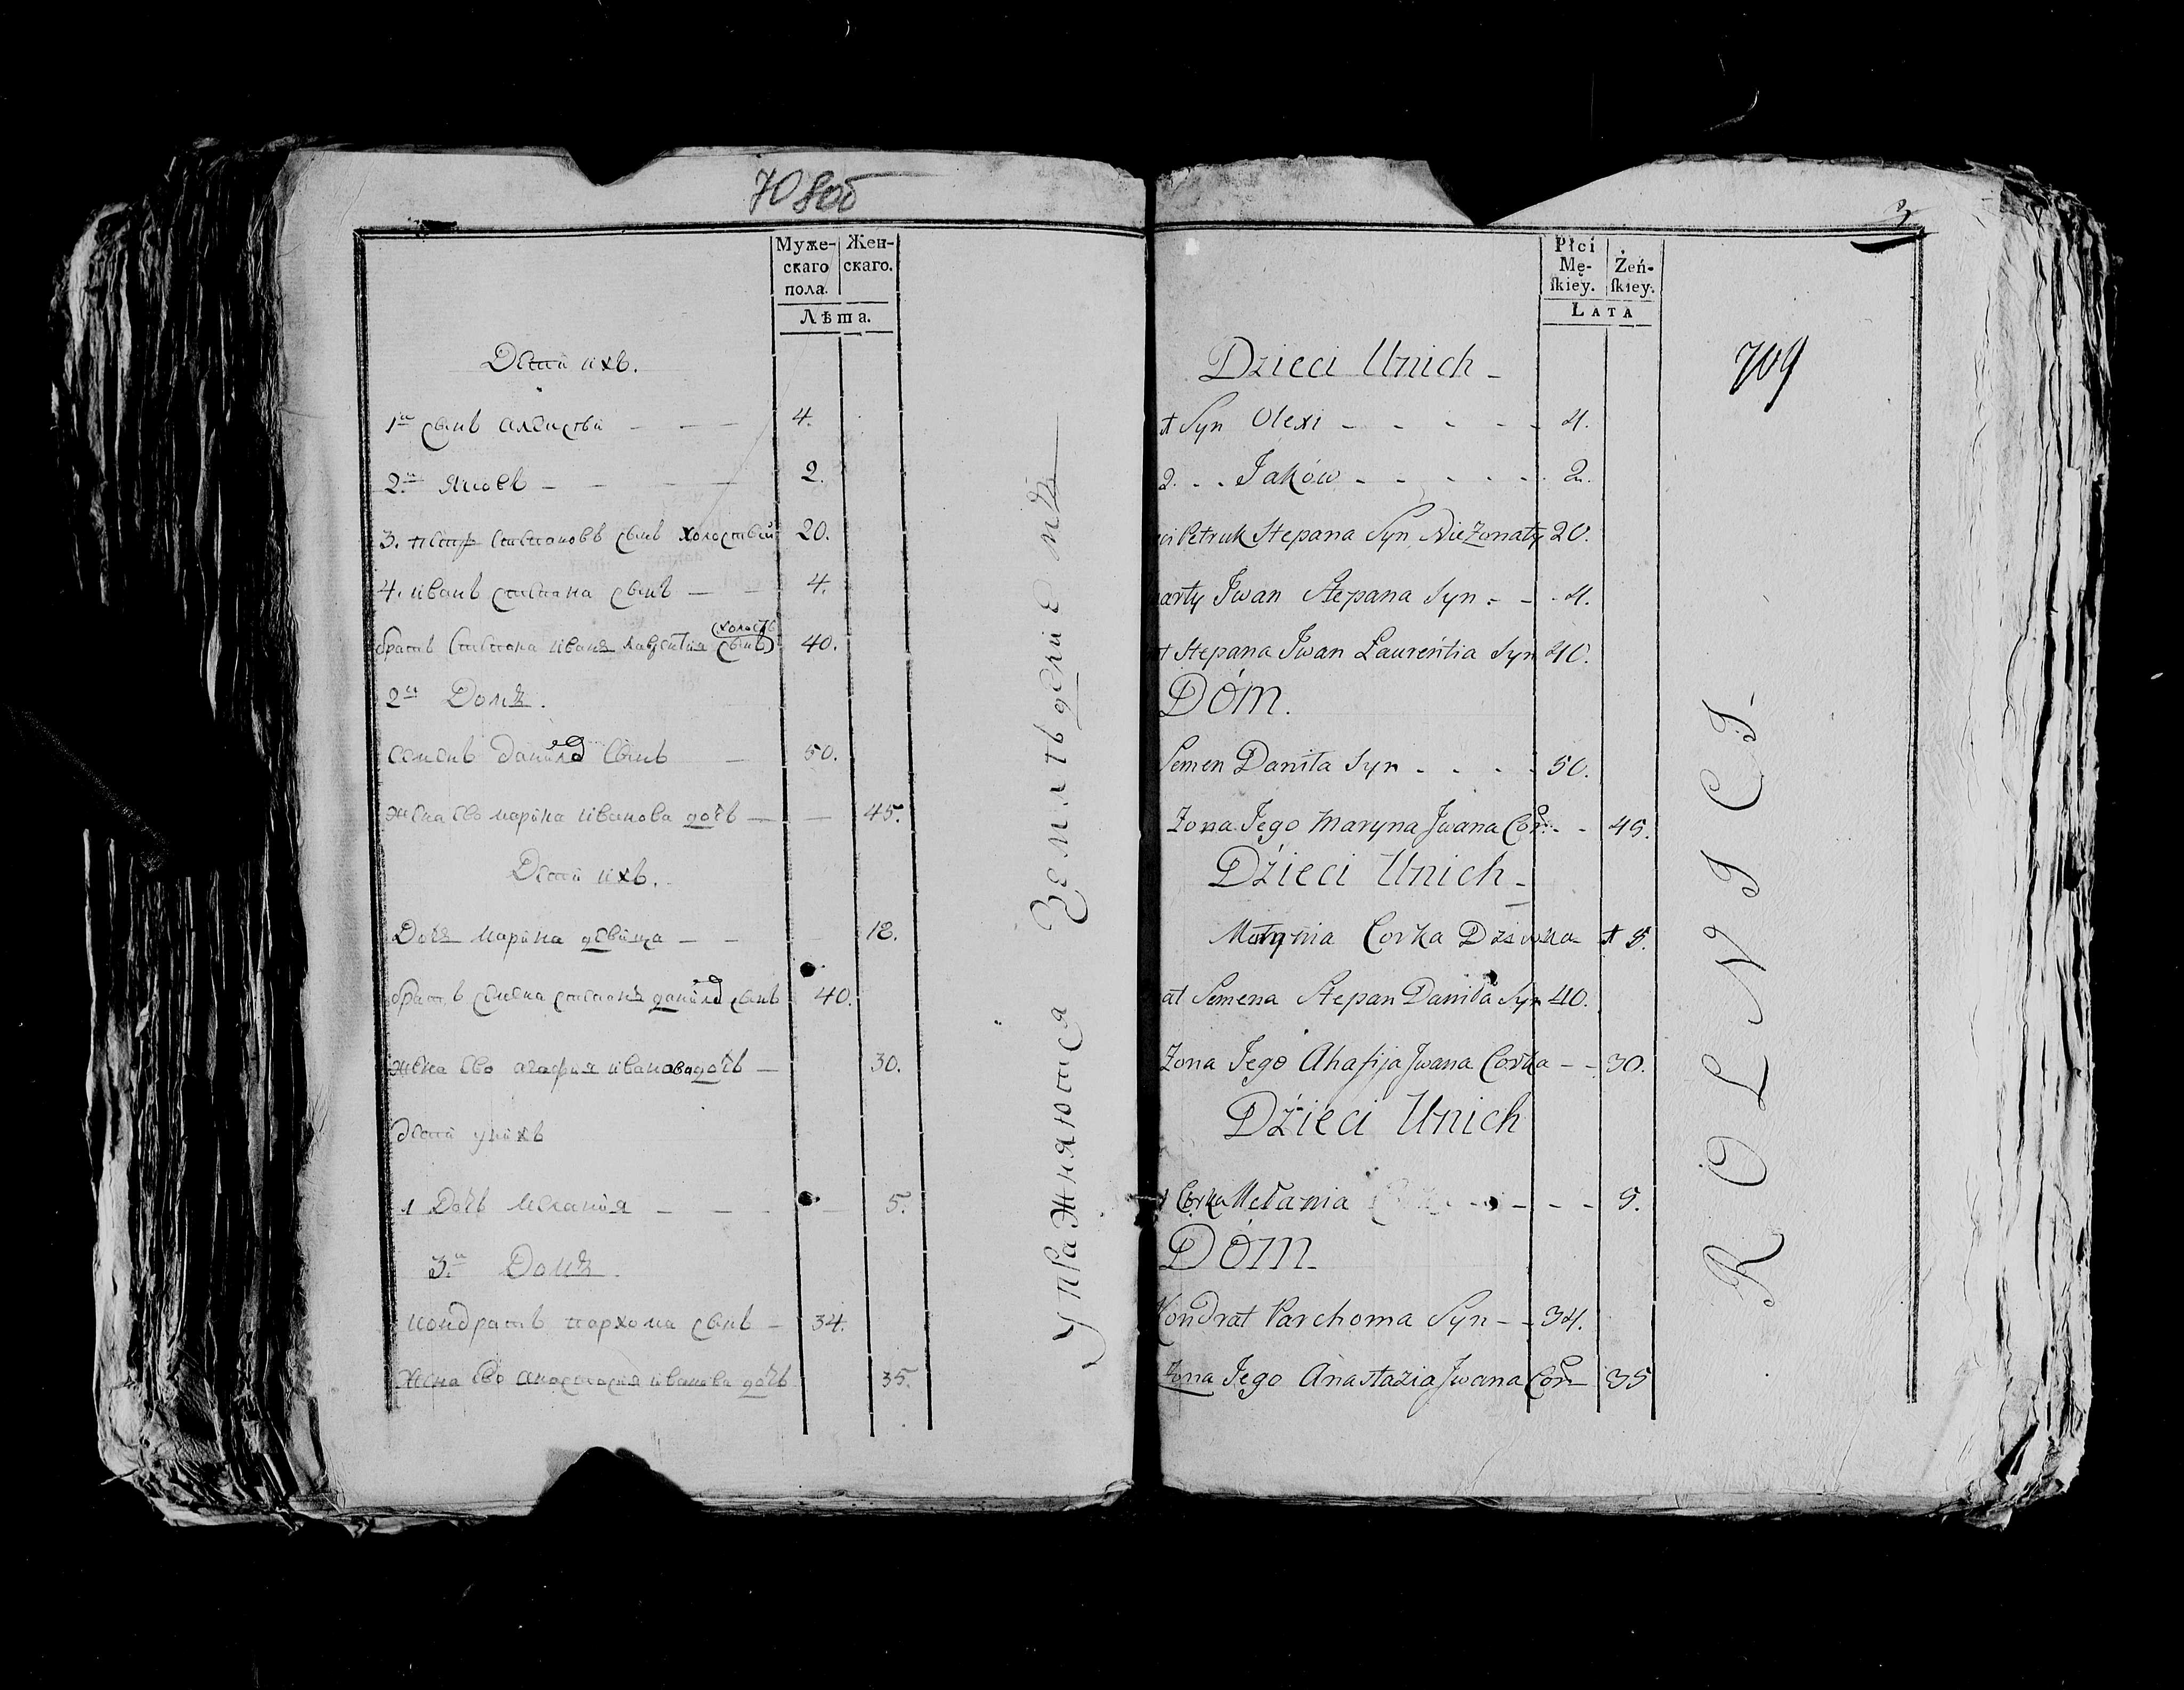 708об
Муже-
скаго
пола.
Жен-
скаго.
Лѣта.
Дети ихъ.
1й сынъ алексей — — — 4.
2й яковъ — — — 2.
3. петр степановъ сынъ холостый 20.
4. иванъ степана сынъ — — 4.
холостъ
братъ степана иванъ лаврентия сынъ 40.
2й Домъ.
семенъ данила сынъ — 50.
жена ево марина иванова дочь — — 45.
Дети ихъ.
Дочь марина девица — — 12.
братъ семена степанъ данила сынъ 40.
жена ево агафия иванова дочь — 30.
дети у нихъ
1 Дочь мелания — — — 5.
3й Домъ.
кондратъ пархома сынъ — 34.
жена ево анастасия иванова дочь 35.
упражняются Земледелием
3
Płci
Mę-
skiey.
Żeń-
skiey.
LATA
709
Dzieci Unich -
1 Syn Olexi - - - - - 4.
2. - - Jaków - - - - - 2.
Petruk Stepana Syn NieZonaty 20.
arty Jwan Stepana Syn - - - 4.
t Stepana Jwan Laurentia Syn 40.
Dóm.
Semen Daniła Syn - - - - 50.
Zona Jego Maryna Jwana Cór: - - 45.
Dzieci Unich -
Corka Dziewka
at Semena Stepan Daniła Syn 40.
Zona Jego Ahafija Jwana Corka - - 30.
Dzieci Unich
1 Corka Mełania - - - - 5.
Dóm.
Kondrat Parchoma Syn - - 34.
Zona Jego Anastazia Jwana Cór- 35
ROLNICJ.